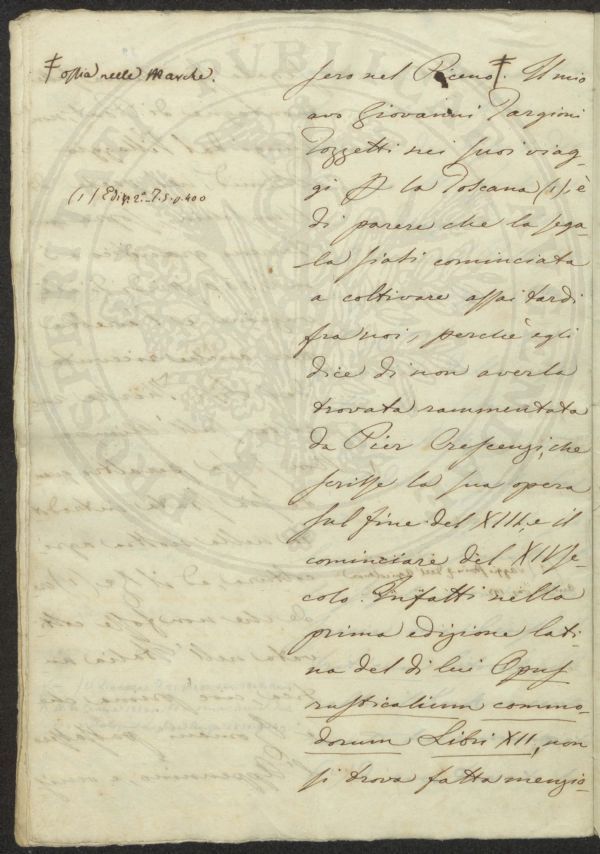 ‡ ossia nelle Marche.
(1) Ediz. 2.ª T. 5. p. 400
sero nel Piceno ‡. Il mio
avo Giovanni Targioni
Tozzetti nei suoi viag-
gi p la Toscana (1), è
di parere che la sega-
la siasi cominciata
a coltivare assai tardi
fra noi, perchè egli
dice di non averla
trovata rammentata
da Pier Crescenzi, che
scrisse la sua opera
sul fine del XIII, e il
cominciare del XIV se-
colo. Infatti nella
prima edizione lati-
na del di lui Opus
rusticalium commo-
dorum Libri XII, non
si trova fatta menzio-